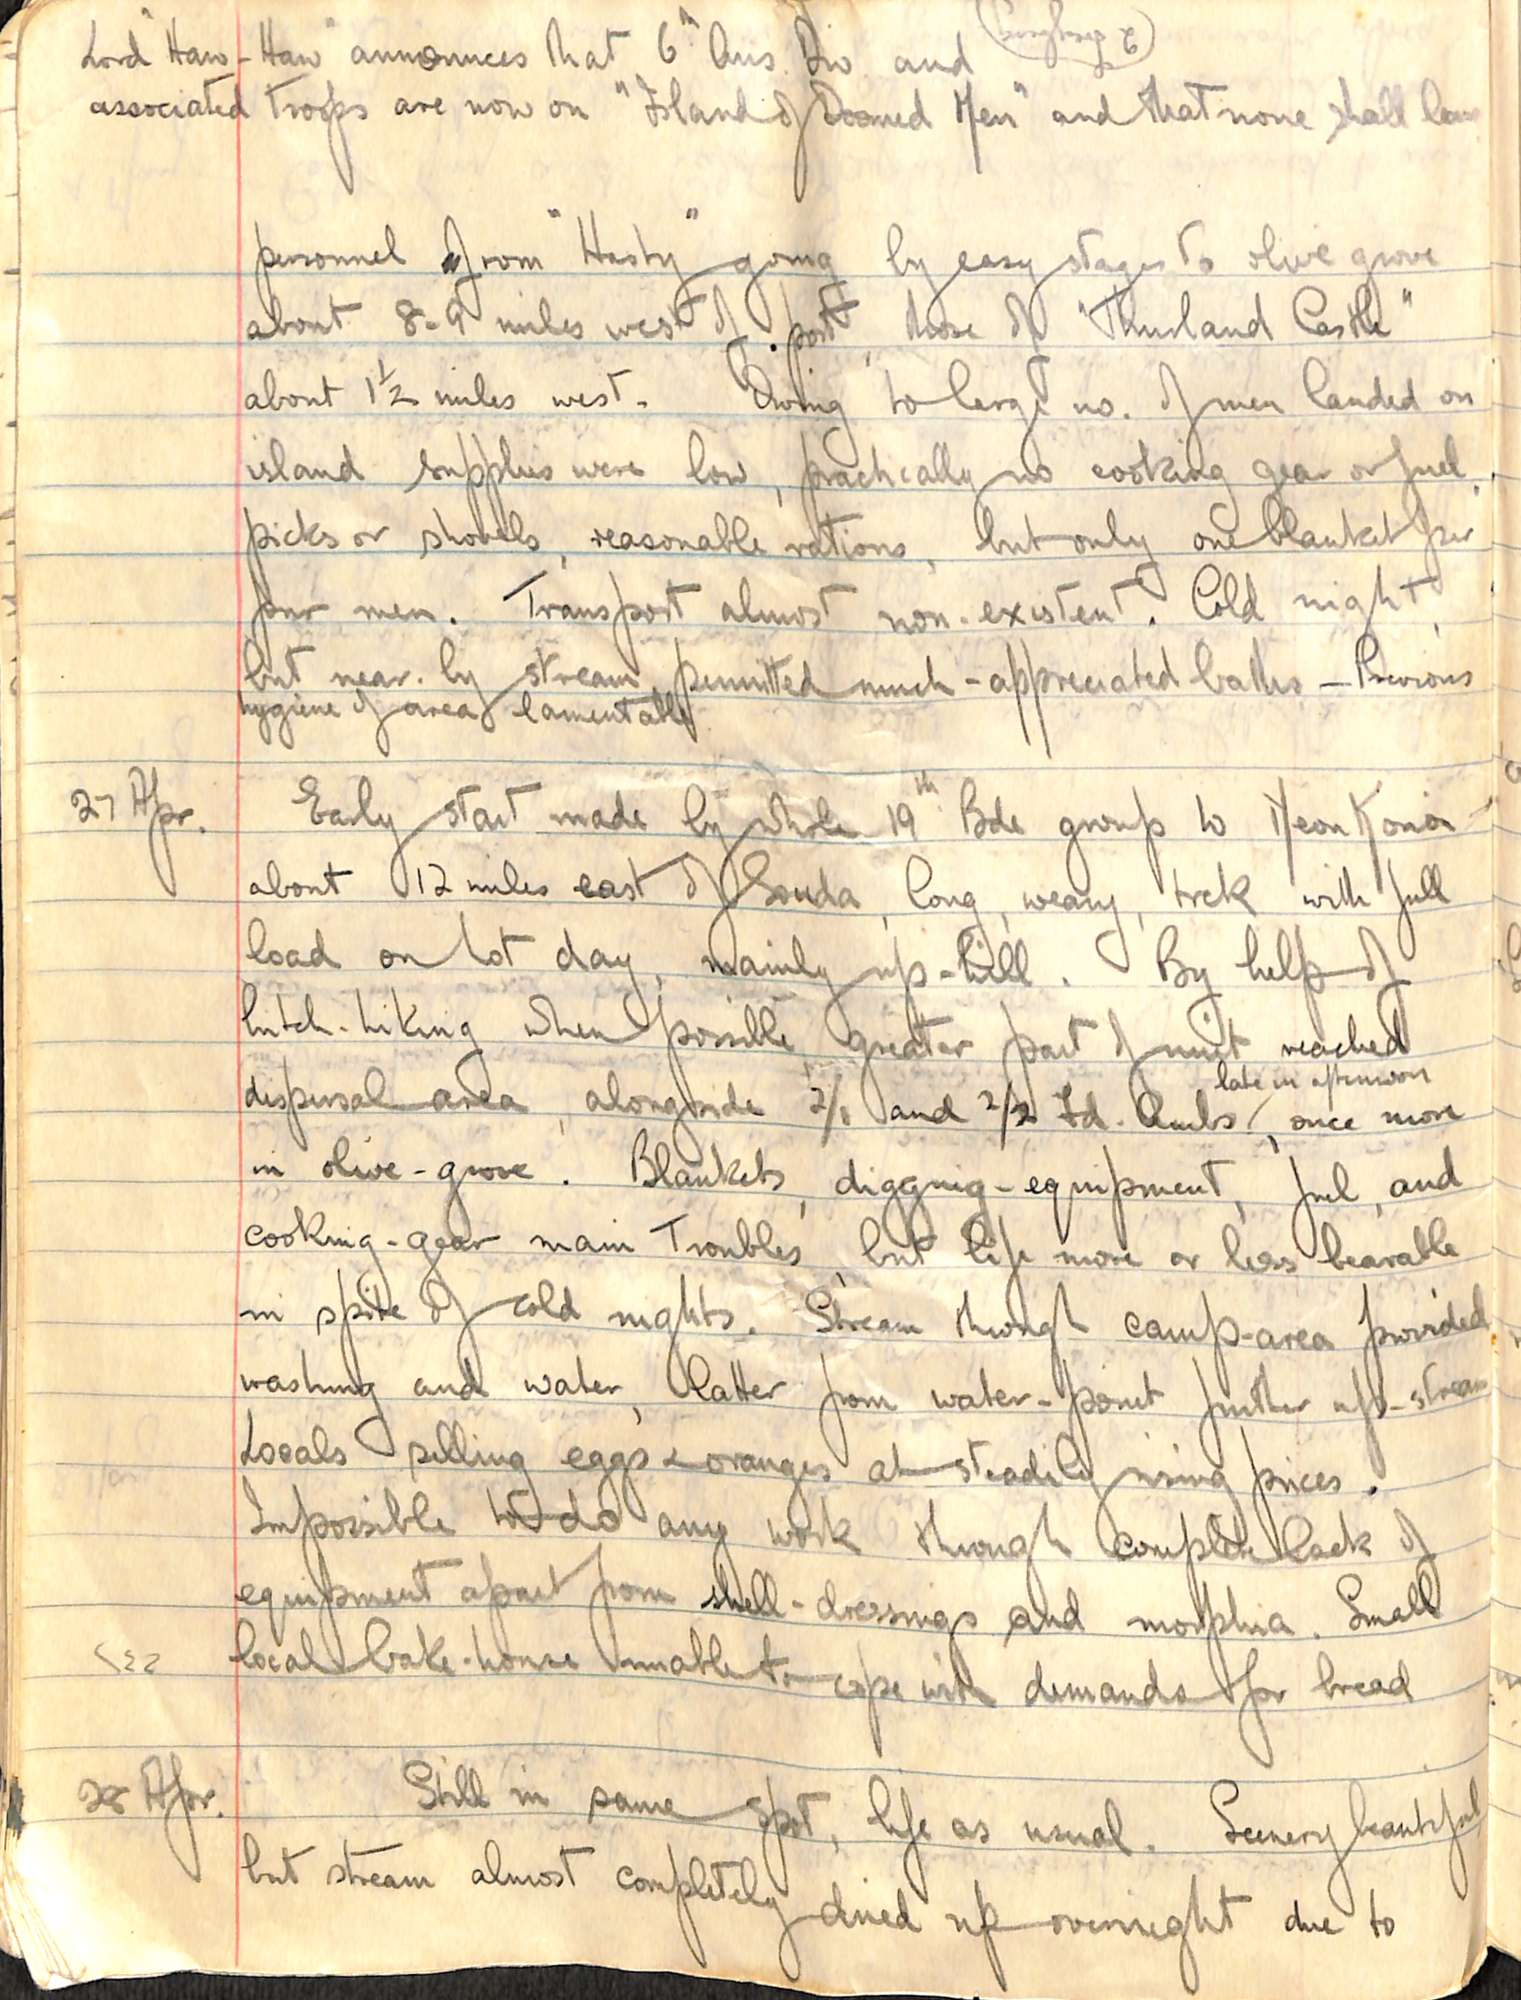 Lord "Haw-Haw" announces that 6th Aus. Div and
associated troops are now on "Island of Doomed Men" and that none shall leave
personnel from "Hasty" going by easy stages to olive grove
about 8-9 miles west of port, those of "Thurland Castle"
about 1½ miles west. Owing to large no. of men landed on
island supplies were low, practically no cooking gear or fuel,
picks or shovels, reasonable rations, but only one blanket per
four men. Transport almost non-existent. Cold night,
but near-by stream permitted much-appreciated baths - Previous
hygiene of area lamentable
27 Apr. Early start made by whole 19th Bde group to
about 12 miles east of Souda, long, weary, trek with full
load on hot day, mainly up-hill. By help of
hitch-hiking when possible, greater part of unit reached
late in afternoon
dispersal area, alongside 2/1 and 2/2 Fd. Ambs, once more
in olive-grove. Blankets, digging-equipment, fuel, and
cooking-gear main troubles, but life more or less bearable
in spite of cold nights. Stream through camp-area provided
washing and water, latter from water-point further up-stream
Locals selling eggs & oranges at steadily rising prices.
Impossible to do any work through complete lack of
equipment apart from shell-dressings and morphia. Small
local bake-house unable to cope with demands for bread
28 Apr. Still in same spot, life as usual. Scenery beautiful
but stream almost completely dried up overnight due to